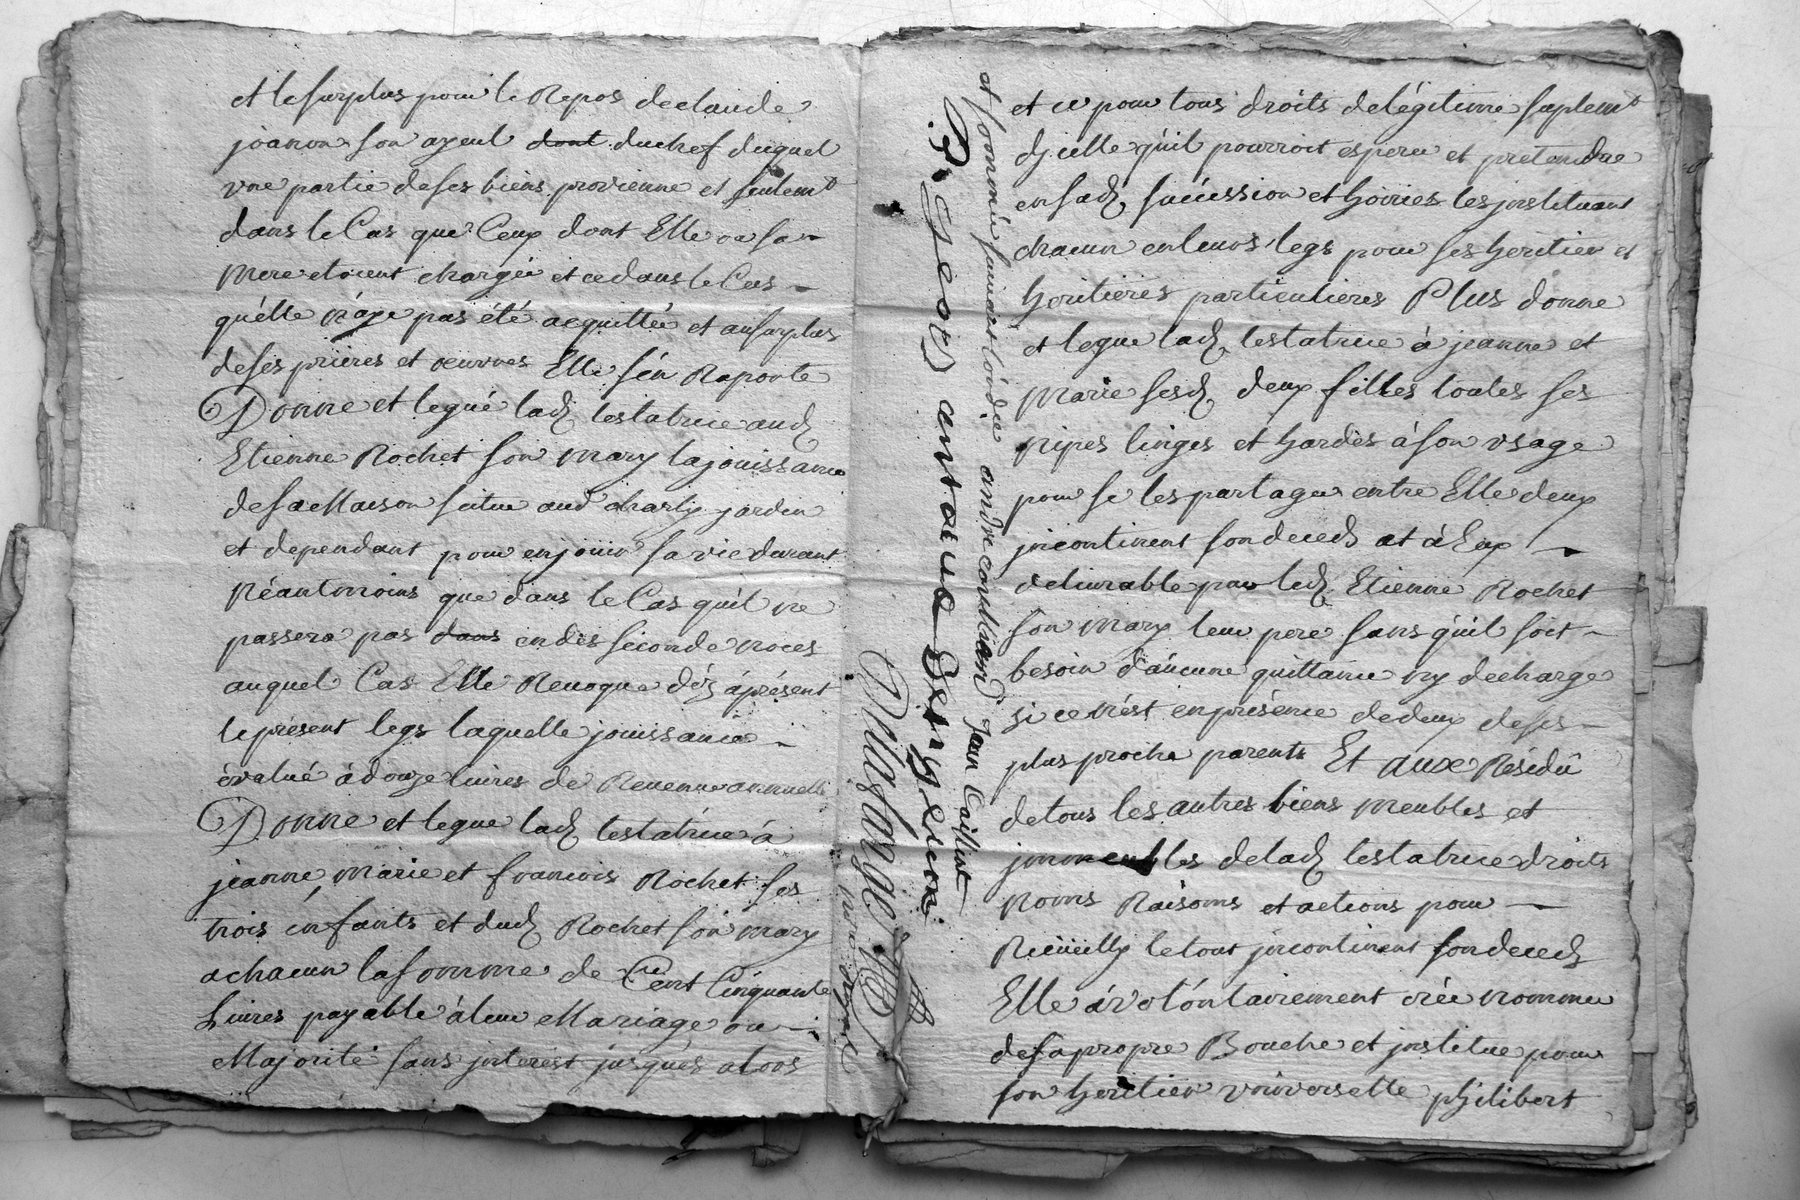 et le surplus pour le Repos de claude
joanon son ayeul dont du chef duquel
vne partie de ses biens provienne et seulemt
dans le Cas que Ceux dont Elle ou sa
Mere etoient chargée et ce dans le Cas
qu'elle n'aye pas été acquittée et au surplus
de ses prières et oeuvres Elle s'en Raporte
Donne et legue lad. testatrice aud.
Etienne Rochet son mary la jouissance
de sa Maison situe aud charly jardin
et dependant pour en jouir sa vie durant
Néantmoins que dans le Cas qu'il ne
passera pas dans en des seconde noces
auquel Cas Elle Revoque dés áprésent
le présent legs laquelle jouissance
évalué à douze livres de Revenue annuelle
Donne et legue lad. testatrice à
jeanne, Marie et francois Rochet ses
trois enfants et dud. Rochet son mary
a chacun la somme de Cent Cinquante
Livres payable à leur Mariage ou
Majorité sans interest jusques alors
et ce pour tous droits de légitime suplemt
d'icelle qu'il pourroit esperer et pretendre
en sad. succession et hoiries les instituant
chacun en leurs legs pour ses heritier et
heritieres particulieres Plus donne
et legue lad. testatrice à jeanne et
Marie sesd. deux filles toutes ses
nipes linges et hardes à son vsage
pour se les partager entre Elle deux
incontinent son deceds et à Eux
delivrable par led. Etienne Rochet
son mary leur pere sans qu'il soit
besoin d'aucune quittance ny decharge
si ce n'est en présence de deux de ses
plus proche parents Et aux Résidû
de tous les autres biens meubles et
immeubles de lad. testatrice droits
Noms Raisoms et actions pour
Recueilly le tout incontinent son deceds
Elle á volóntairement crée nommee
de sa propre Bouche et institue pour
son heritier vniverselle philibert
andre coulland
Jean Caillat